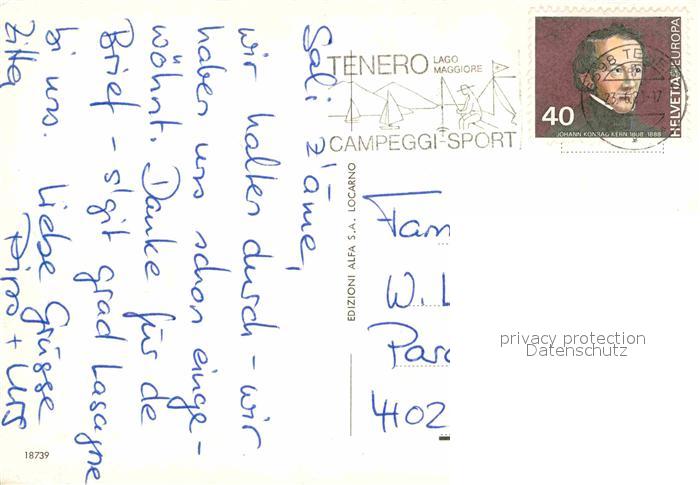 Sali z'äme,
wir halten durch - wir
haben uns schon einge-
wöhnt. Danke für de
Brief - s'git grad Lasagne
bi uns. Liebe Grüsse
TENERO LAGO
MAGGIORE
CAMPEGGI-SPORT
40
JOHANN KONRAD KERN 1808-1888
HELVETIA EUROPA
EDIZIONI ALFA S.A. LOCARNO
Fam
W. L
Par
4402
privacy protection
Datenschutz
18739